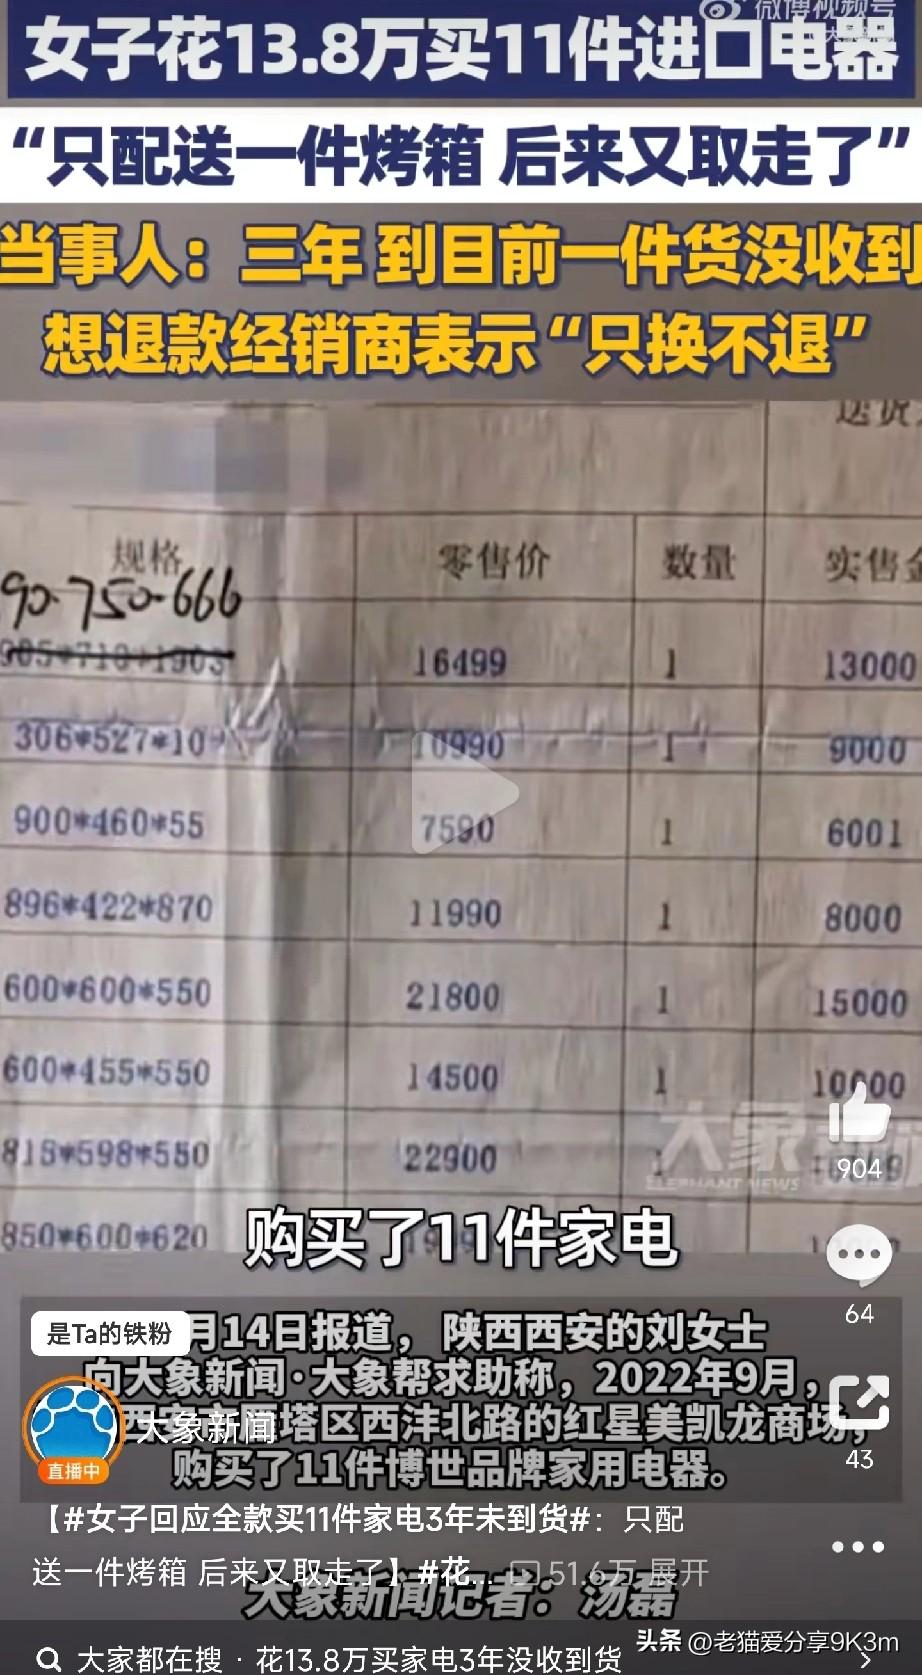 微博视频号
女子花13.8万买11件进口电器
“只配送一件烤箱 后来又取走了”
当事人：三年 到目前一件货没收到
想退款经销商表示“只换不退”
送货
规格 零售价 数量 实售金
90-750-666
985*710*1903 16499 1 13000
306*527*10 10990 1 9000
900*460*55 7590 1 6001
896*422*870 11990 1 8000
600*600*550 21800 1 15000
600*455*550 14500 1 10000
815*598*550 22900 1
850*600*620
大象新闻
ELEPHANT NEWS
904
购买了11件家电
64
是Ta的铁粉
月14日报道， 陕西西安的刘女士
向大象新闻·大象帮求助称，2022年9月，
塔区西沣北路的红星美凯龙商场，
大象新闻
直播中
购买了11件博世品牌家用电器。
43
【#女子回应全款买11件家电3年未到货#：只配
送一件烤箱 后来又取走了】#花... 51.6万 展开
大象新闻记者：汤磊
头条 @老猫爱分享9K3m
大家都在搜 · 花13.8万买家电3年没收到货